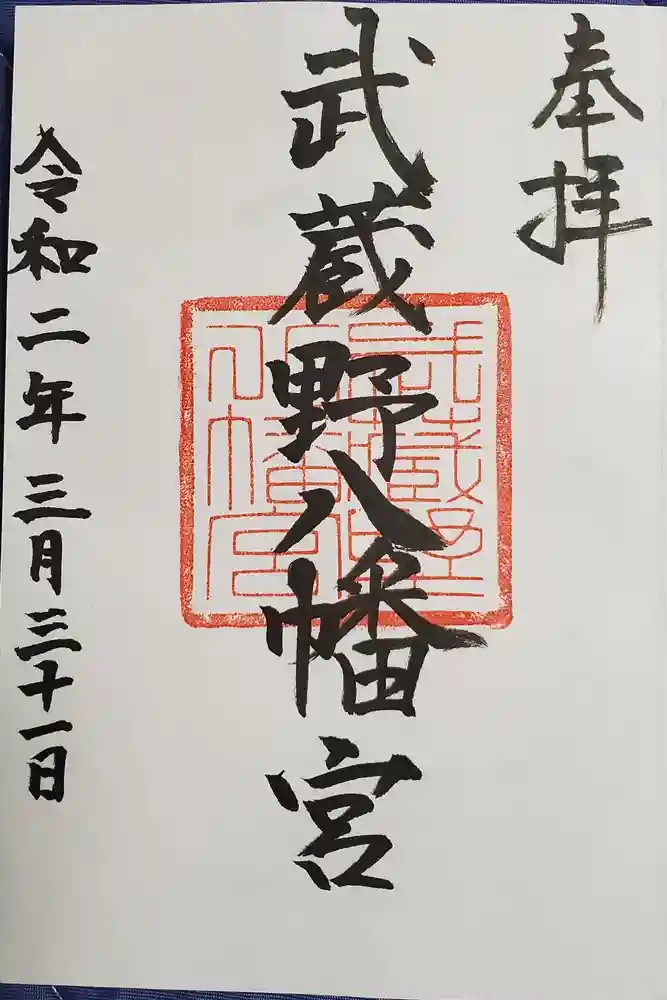 奉拝
武蔵野八幡宮
武蔵野八幡宮
令和二年三月三十一日